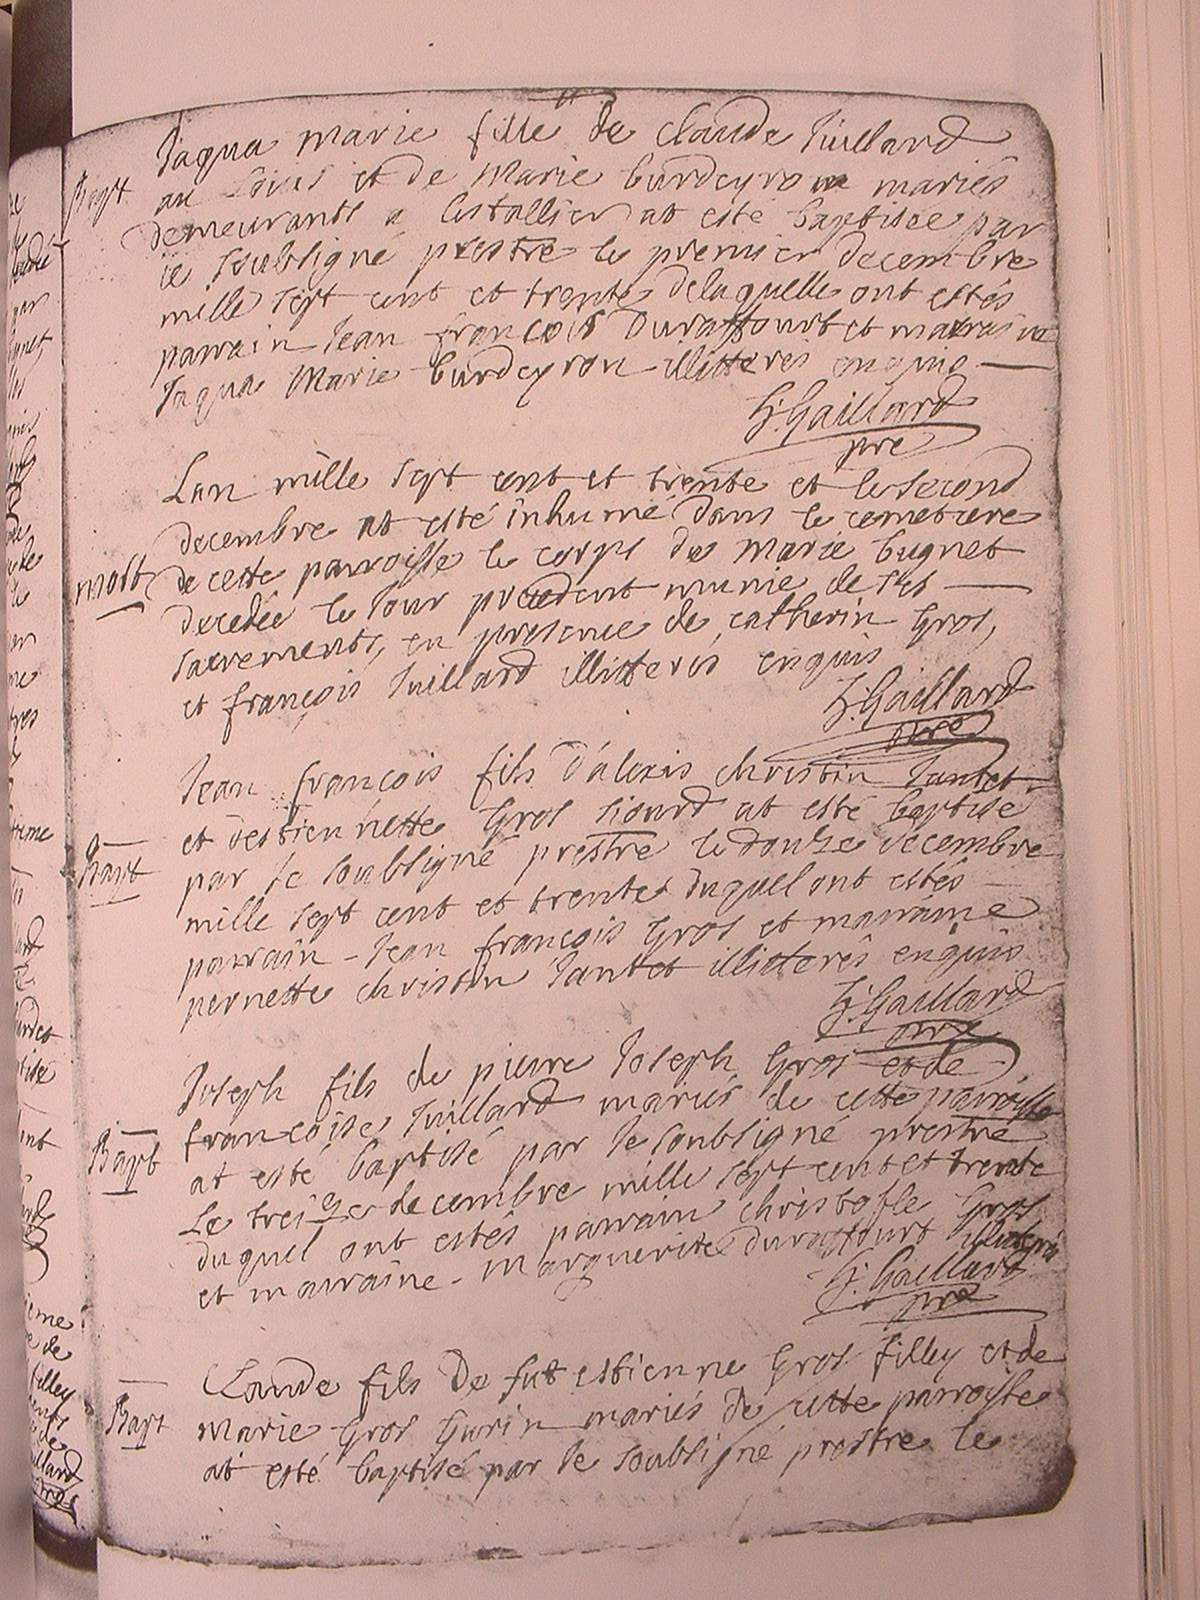 Bapt
Jaqua marie fille de claude Tuillard
au Louis et de Marie burdeyron mariés
demeurants a Lestallier at esté baptisée par
ie soubsigné prestre le premier decembre
mille sept cent et trente de laquelle ont estés
parrain Jean françois duraffourt et marraine
Jaqua Marie burdeyron illitteres enquis
H. Gaillard
pre
mort
Lan mille sept cent et trente et le second
decembre at esté inhumé dans le cemetiere
de cette parroisse le corps de marie bugnet
decedée le Jour precedent munie de ses
sacrements, en presence de catherin Gros,
et françois Tuillard illitteres enquis
H. Gaillard
pre
Bapt
Jean françois fils d'alexis christin Tantet
et destiennette Gros siourd at esté baptise
par Je soubsigné prestre le douze decembre
mille sept cent et trente duquel ont estés
parrain Jean françois Gros et marraine
pernette christin Tantet illitterés enquis
H. Gaillard
pre
Bapt
Joseph fils de pierre Joseph Gros et de
francoise Tuillard mariés de cette parroisse
at esté baptisé par Je soubsigné prestre
Le treize decembre mille sept cent et trente
duquel ont estés parrain christofle Gros
et marraine marguerite duraffourt illiteres
H. Gaillard
pre
Bapt
Claude fils De fut estienne Gros filley et de
Marie Gros Gurin mariés de cette parroisse
at esté baptisé par Je soubsigné prestre le